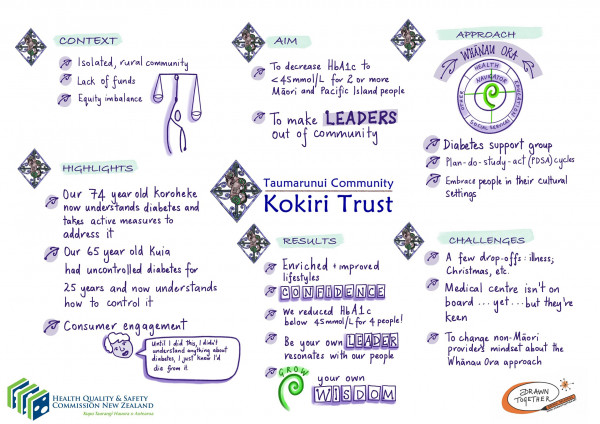 CONTEXT
Isolated, rural community
Lack of funds
Equity imbalance
AIM
To decrease HbA1c to
<45mmol/L for 2 or more
Māori and Pacific Island people
To make LEADERS
out of community
APPROACH
WHĀNAU ORA
HEALTH
NAVIGATOR
EDUCATION
SOCIAL SERVICES
Diabetes support group
Plan-do-study-act (PDSA) cycles
Embrace people in their cultural
settings
HIGHLIGHTS
Our 74 year old Koroheke
now understands diabetes and
takes active measures to
address it
Our 65 year old Kuia
had uncontrolled diabetes for
25 years and now understands
how to control it
Consumer engagement
Until I did this, I didn't
understand anything about
diabetes, I just knew I'd
die from it
Taumarunui Community
Kokiri Trust
RESULTS
Enriched + improved
lifestyles
CONFIDENCE
We reduced HbA1c
below 45mmol/L for 4 people!
Be your own LEADER
resonates with our people
GROW
your own
WISDOM
CHALLENGES
A few drop-offs: illness;
Christmas, etc.
Medical centre isn't on
board ... yet ... but they're
keen
To change non-Māori
providers mindset about the
Whānau Ora approach
HEALTH QUALITY & SAFETY
COMMISSION NEW ZEALAND
Kupu Taurangi Hauora o Aotearoa
DRAWN
TOGETHER